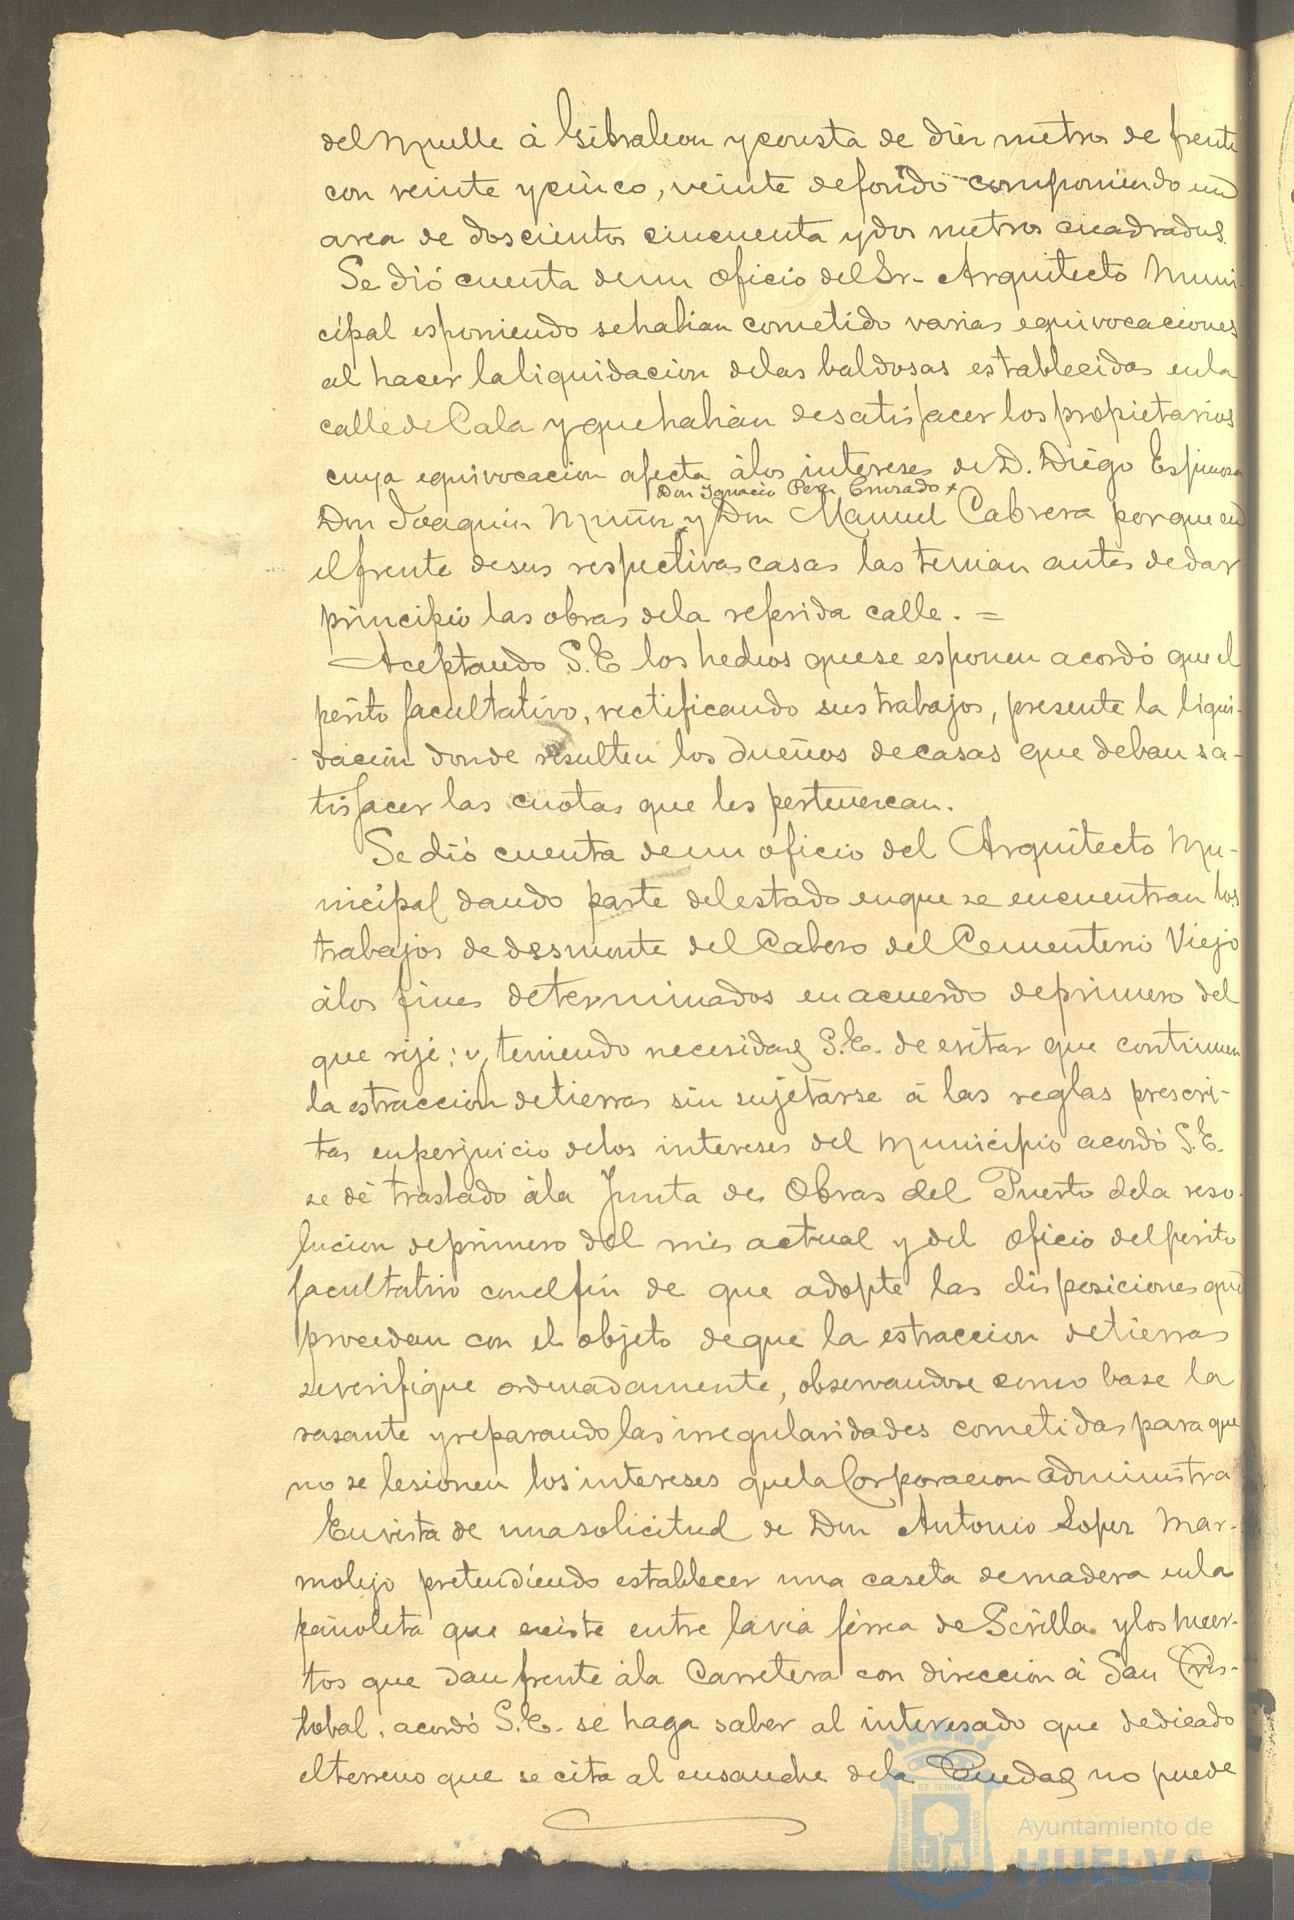 del Muelle á Gibraleon y consta de diez metros de frente
con veinte y cinco, veinte de fondo componiendo un
area de doscientos cincuenta y dos metros cuadrados.
Se dió cuenta de un oficio del Sr. Arquitecto Muni-
cipal esponiendo se habian cometido varias equivocaciones
al hacer la liquidacion de las baldosas establecidas en la
calle de Cala y que habian de satisfacer los propietarios
cuya equivocacion afecta á los intereses de D. Diego Espinosa
Don Ignacio Perez
Don Joaquin Muñoz y Don Manuel Cabrera porque en
el frente de sus respectivas casas las tenian antes de dar
principio las obras de la referida calle. =
Aceptando S.E los hechos que se esponen acordó que el
perito facultativo, rectificando sus trabajos, presente la liqui-
dacion donde resulten los dueños de casas que deban sa-
tisfacer las cuotas que les pertenezcan.
Se dió cuenta de un oficio del Arquitecto Mu-
nicipal dando parte del estado en que se encuentran los
trabajos de desmonte del Cabezo del Cementerio Viejo
á los fines determinados en acuerdo de primero del
que rije; y, teniendo necesidad S.E. de evitar que continuen
la estraccion de tierras sin sujetarse á las reglas prescri-
tas en perjuicio de los intereses del Municipio acordó S.E.
se dé traslado á la Junta de Obras del Puerto de la reso-
lucion de primero del mes actual y del oficio del perito
facultativo con el fin de que adopte las disposiciones que
procedan con el objeto de que la estraccion de tierras
se verifique ordenadamente, observandose como base la
rasante y reparando las irregularidades cometidas para que
no se lesionen los intereses que la Corporacion administra
En vista de una solicitud de Don Antonio Lopez Mar-
molejo pretendiendo establecer una caseta de madera en la
pañoleta que existe entre la via férrea de Sevilla y los huer-
tos que dan frente á la Carretera con direccion á San Cris-
tobal, acordó S.E. se haga saber al interesado que dedicado
el terreno que se cita al ensanche de la Ciudad no puede
Ayuntamiento de
HUELVA